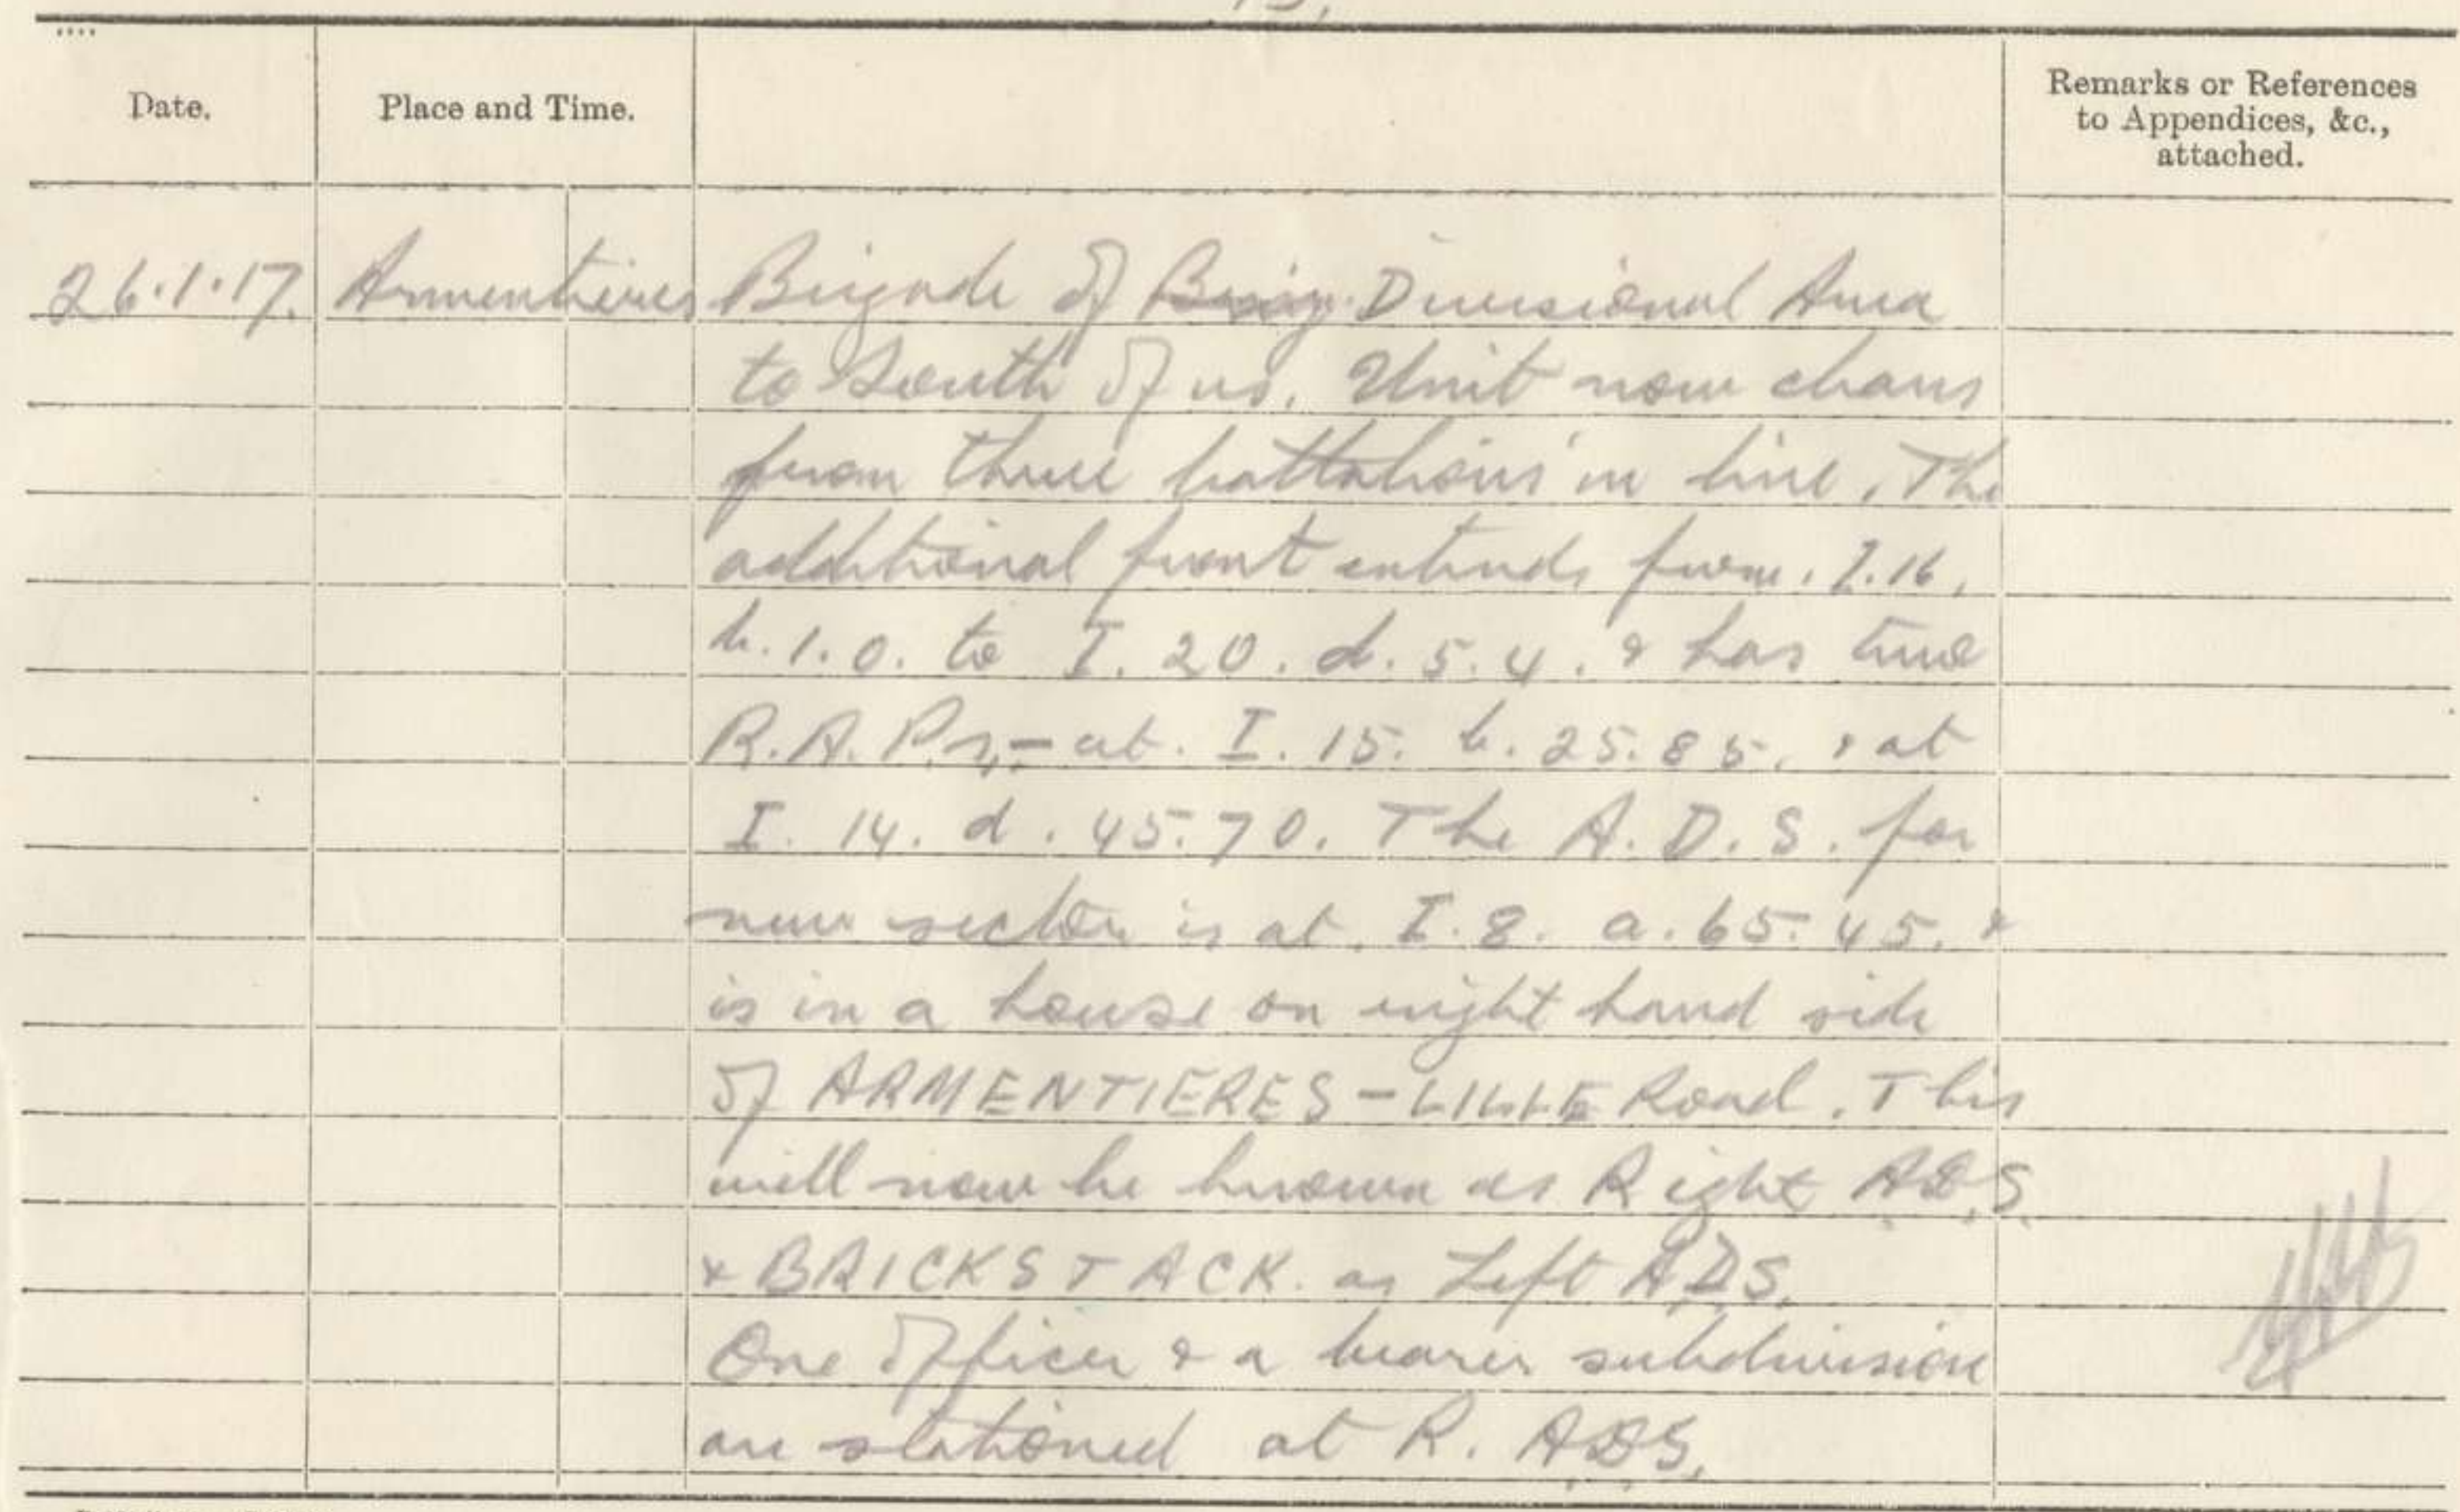 Date.
Place and Time.
Remarks or References
to Appendices, &c.,
attached.
26.1.17. Armentieres Brigade of Brig. Divisional Area
to South of us. Unit now clears
from three battalions in line. The
additional front extends from. I.16.
b.1.0. to I. 20. d. 5.4. & has two
R.A.P.s,- at. I. 15. b. 25.85. & at
I. 14. d. 45.70. The A.D.S. for
new sector is at. I.8. a. 65.45. &
is in a house on right hand side
of ARMENTIERES - LILLE Road. This
will now be known as Right A.D.S.
& BRICKSTACK. as Left A.D.S.
One officer & a bearer subdivision
are stationed at R. A.D.S.